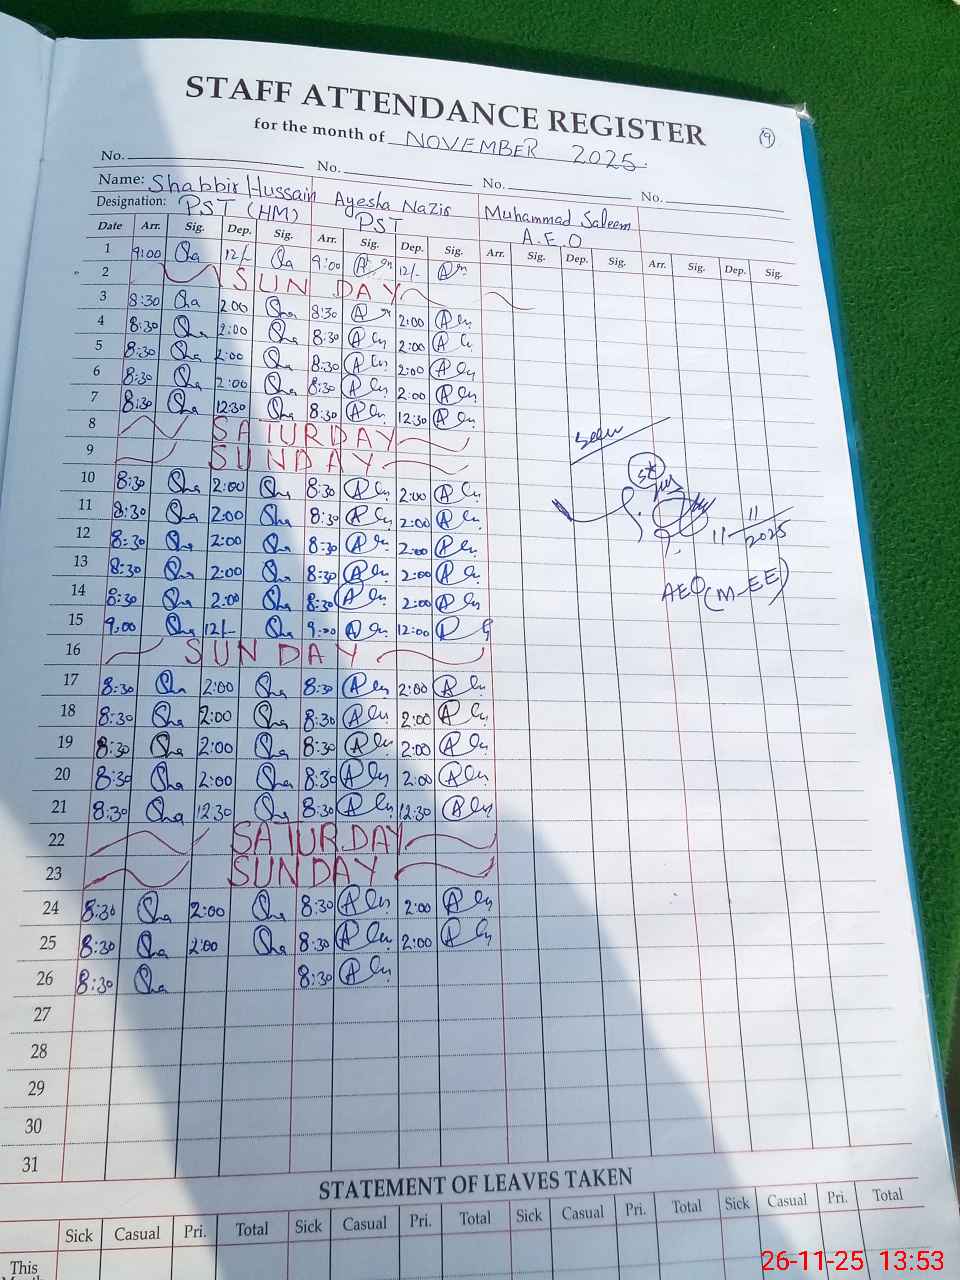 STAFF ATTENDANCE REGISTER
9
for the month of NOVEMBER 2025.
No. No. No. No.
Name: Shabbir Hussain Ayesha Nazir Muhammad Saleem
Designation: PST (HM) PST A.E.O
Date Arr. Sig. Dep. Sig. Arr. Sig. Dep. Sig. Arr. Sig. Dep. Sig. Arr. Sig. Dep. Sig.
1 9:00 Sha 12/- Sha 9:00 12/-
2 SUNDAY
3 8:30 Sha 2:00 Sha 8:30 2:00
4 8:30 Sha 2:00 Sha 8:30 2:00
5 8:30 Sha 2:00 Sha 8:30 2:00
6 8:30 Sha 2:00 Sha 8:30 2:00
7 8:30 Sha 12:30 Sha 8:30 12:30
8 SATURDAY
9 SUNDAY
10 8:30 Sha 2:00 Sha 8:30 2:00
11 8:30 Sha 2:00 Sha 8:30 2:00
12 8:30 Sha 2:00 Sha 8:30 2:00
13 8:30 Sha 2:00 Sha 8:30 2:00
14 8:30 Sha 2:00 Sha 8:30 2:00
15 9:00 Sha 12/- Sha 9:00 12:00
16 SUNDAY
17 8:30 Sha 2:00 Sha 8:30 2:00
18 8:30 Sha 2:00 Sha 8:30 2:00
19 8:30 Sha 2:00 Sha 8:30 2:00
20 8:30 Sha 2:00 Sha 8:30 2:00
21 8:30 Sha 12:30 Sha 8:30 12:30
22 SATURDAY
23 SUNDAY
24 8:30 Sha 2:00 Sha 8:30 2:00
25 8:30 Sha 2:00 Sha 8:30 2:00
26 8:30 Sha 8:30
27
28
29
30
31
Seen
11 11 2025
AEO (M-EE)
STATEMENT OF LEAVES TAKEN
Sick Casual Pri. Total Sick Casual Pri. Total Sick Casual Pri. Total Sick Casual Pri. Total
This
26-11-25 13:53